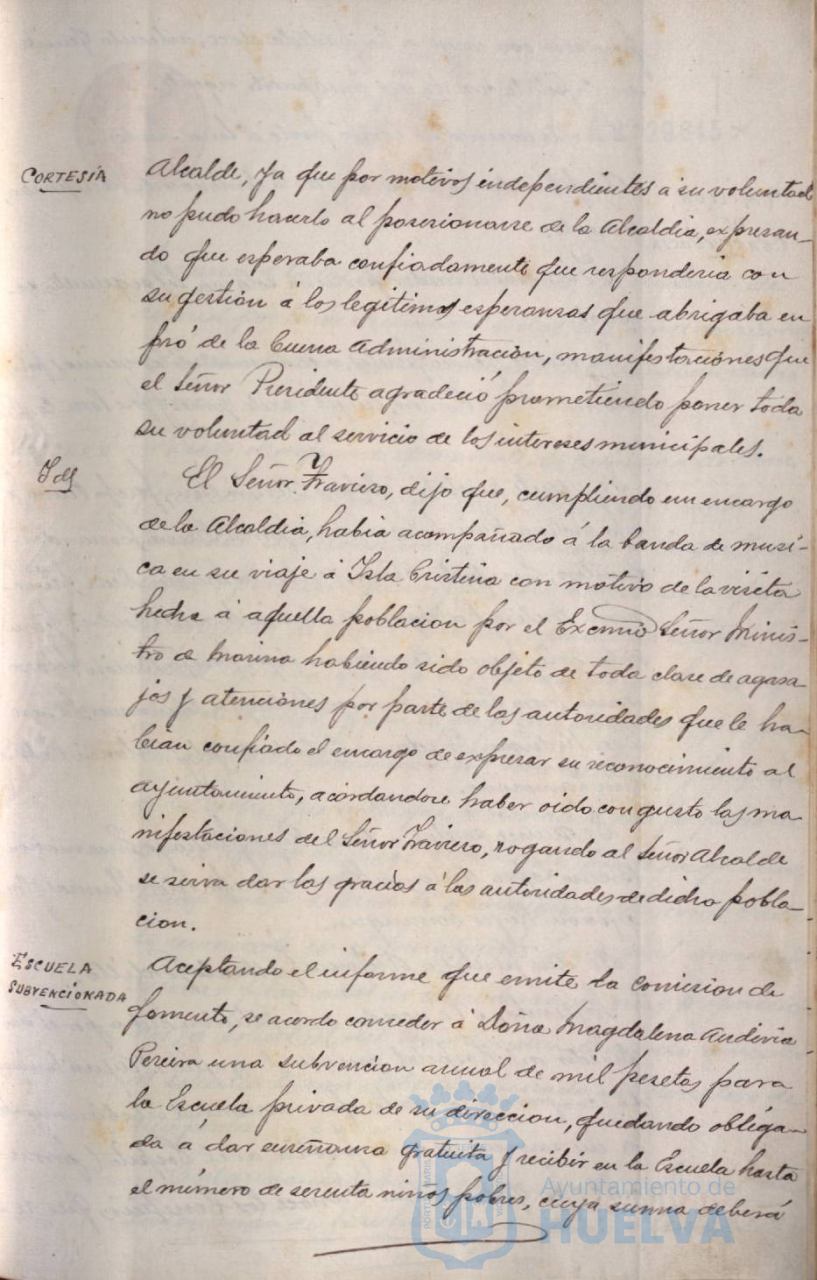 CORTESÍA
Alcalde, ya que por motivos independientes á su voluntad
no pudo hacerlo al posesionarse de la Alcaldia, expresan-
do que esperaba confiadamente que responderia con
su gestión á las legitimas esperanzas que abrigaba en
pró de la buena Administración, manifestaciones que
el Señor Presidente agradeció prometiendo poner toda
su voluntad al servicio de los intereses municipales.
Id
El Señor Travieso, dijo que, cumpliendo un encargo
de la Alcaldia, habia acompañado á la banda de musi-
ca en su viaje á Isla Cristina con motivo de la visita
hecha á aquella poblacion por el Excmo Señor Minis-
tro de Marina habiendo sido objeto de toda clase de agasa-
jos y atenciones por parte de las autoridades que le ha-
bian confiado el encargo de expresar su reconocimiento al
Ayuntamiento, acordandose haber oido con gusto las ma-
nifestaciones del Señor Travieso, rogando al Señor Alcalde
se sirva dar las gracias á las autoridades de dicha pobla-
cion.
ESCUELA
SUBVENCIONADA
Aceptando el informe que emite la comision de
fomento, se acordo conceder á Doña Magdalena
Pereira una subvencion anual de mil pesetas para
la Escuela privada de su direccion, quedando obliga-
da á dar enseñanza gratuita y recibir en la Escuela hasta
el número de sesenta niños pobres, cuya suma deberá
Ayuntamiento de
HUELVA